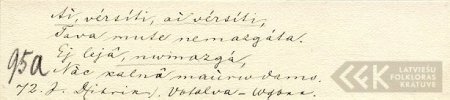 Ai, vērsīti, ai vērsīti,
Tava mute nemazgāta.
Ej lejā, numazgā,
95a
Nāc kalnā maurudams.
72. J. Dzirnis, Votalva
LATVIEŠU
FOLKLORAS
KRĀTUVE